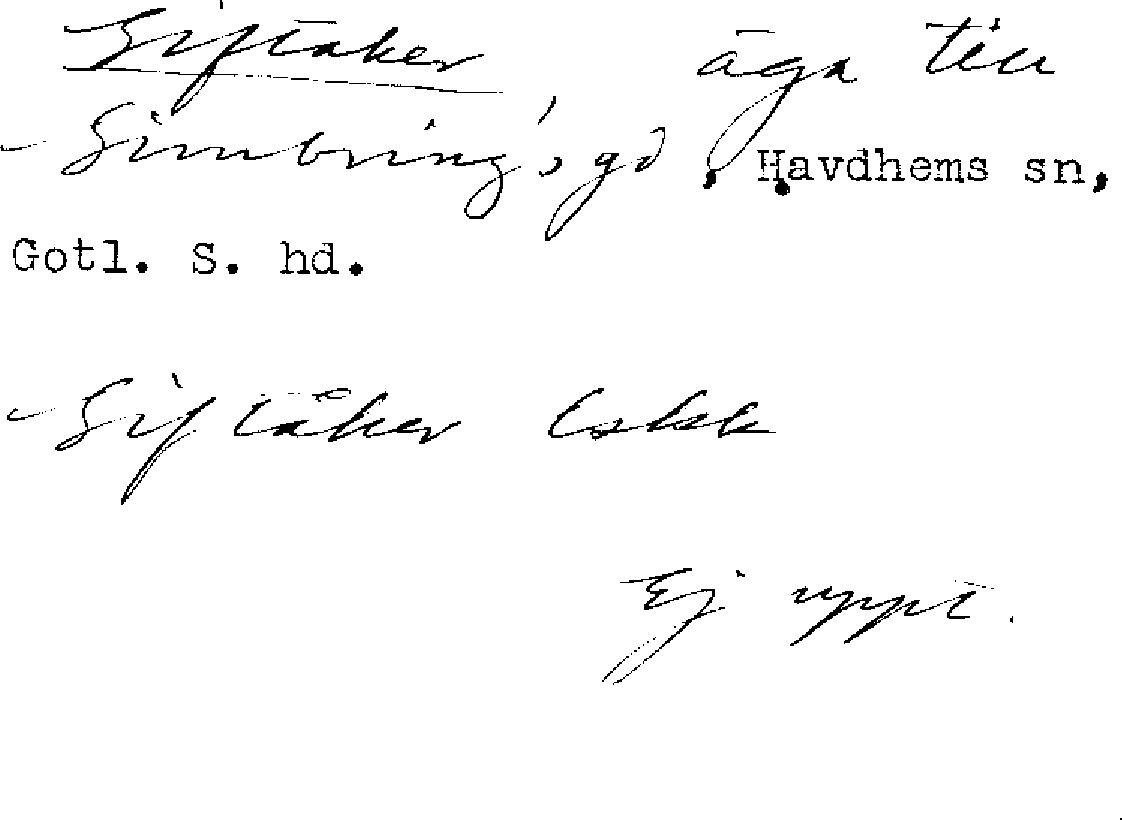 Siftåker, äga till
Simbring's gd, Havdhems sn,
Gotl. S. hd.
Siftåker Lskk
Ej uppt.